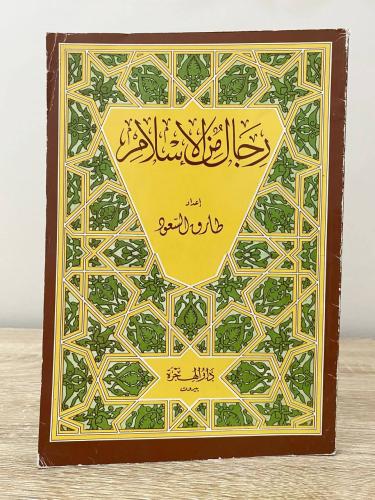 رجال من الإسلام
إعداد
طارق السعود
دار الهجرة
بيروت